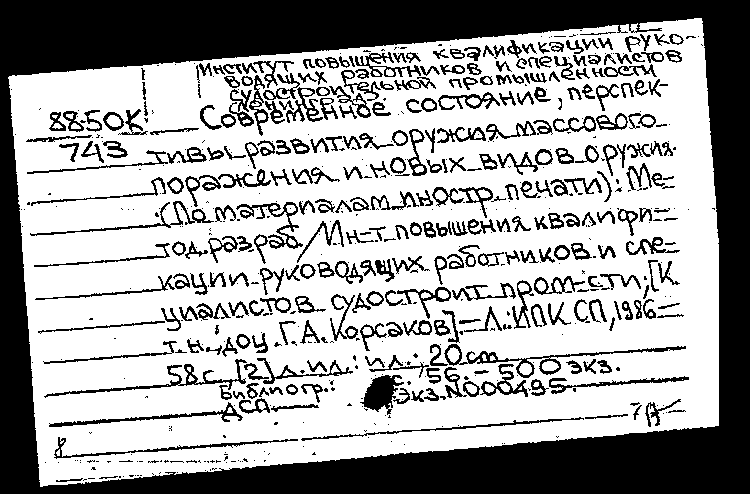 Институт повышения квалификации руко-
водящих работников и специалистов
судостроительной промышленности
(Ленинград)
88-50К Современное состояние, перспек-
743 тивы развития оружия массового
поражения и новых видов оружия.
(По материалам иностр. печати): Ме-
тод. разраб. / Ин-т повышения квалифи-
кации руководящих работников и спе-
циалистов судостроит. пром-сти; [К.
т. н., доц. Г. А. Корсаков]. – Л.: ИПК СП, 1986 –
58 с. [2] л. ил.: ил.; 20 cm.
Библиогр.: с. 56. – 500 экз.
ДСП. Экз. N000495.
8